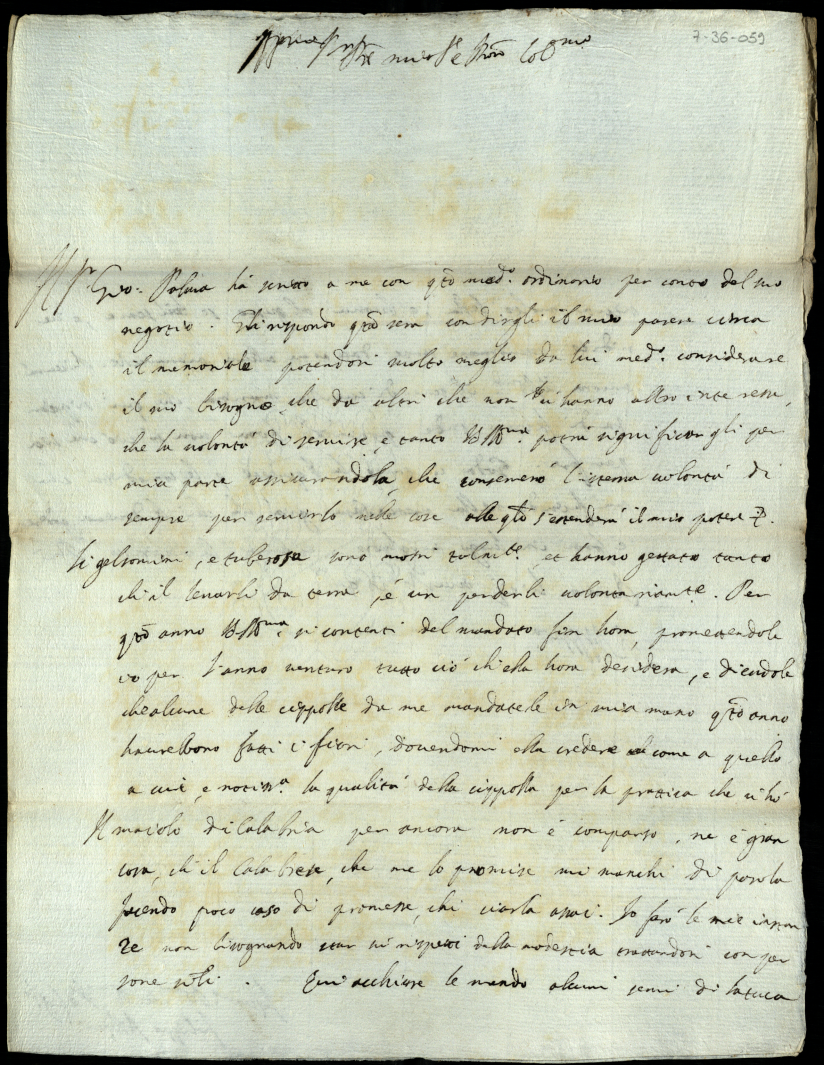 7-36-059
Sig.r Gio: Palma hà scritto a me con q̃to med.o ordinario per conto del suo
negotio. Gli rispondo q̃ta sera con dirgli il mio parere circa
il memoriale potendosi molto meglio da lui med.o considerare
il suo bisogno, che da altri che non ui hanno altro interesse,
che la uolontà di seruire, e tanto VS Ill.ma potrà significargli per
mia parte assicurandola, che conseruerò l'istessa uolontà di
sempre per seruirlo nelle cose alle q̃li s'estenderà il mio potere
Li gelsomini, e tuberose sono nostri, et hanno gettato tanto
ch'il leuarli da terra, é un perderli uolontariam.te. Per
q̃to anno VS Ill.ma si contenti del mandato fin hora, promettendole
io per l'anno uenturo tutto ciò ch'ella hora desidera, e dicendole
che alcune delle cippolle da me mandatele in mia mano q̃to anno
haurebbono fatti i fiori, douendomi ella credere come a quello
a cui è notiss.a la qualità della cippolla per la prattica che ui hò
Il maiolo di Calabria per ancora non è comparso, ne è gran
cosa, ch'il Calabrese, che me lo promise mi manchi di parola
facendo poco caso di promesse, chi ciarla assai. Io farò le mie instan
ze non bisognando star sù i rispetti della modestia trattandosi con per
sone simili. Qui acchiuse le mando alcuni semi di lattuca